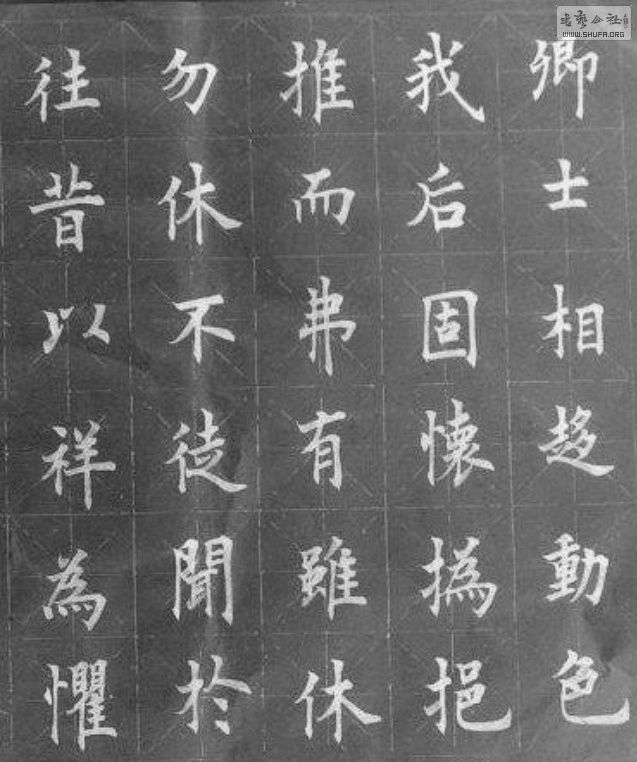 卿士相趍動色
我后固懷撝挹
推而弗有雖休
勿休不徒聞於
往昔以祥為懼
WWW.SHUFA.ORG